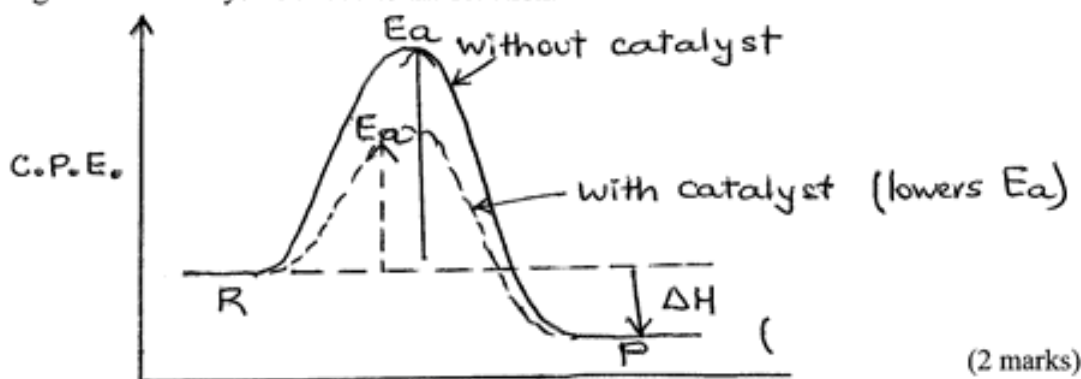 Ea
without catalyst
Ea
C.P.E.
with catalyst (lowers Ea)
R
ΔH
P
(
(2 marks)